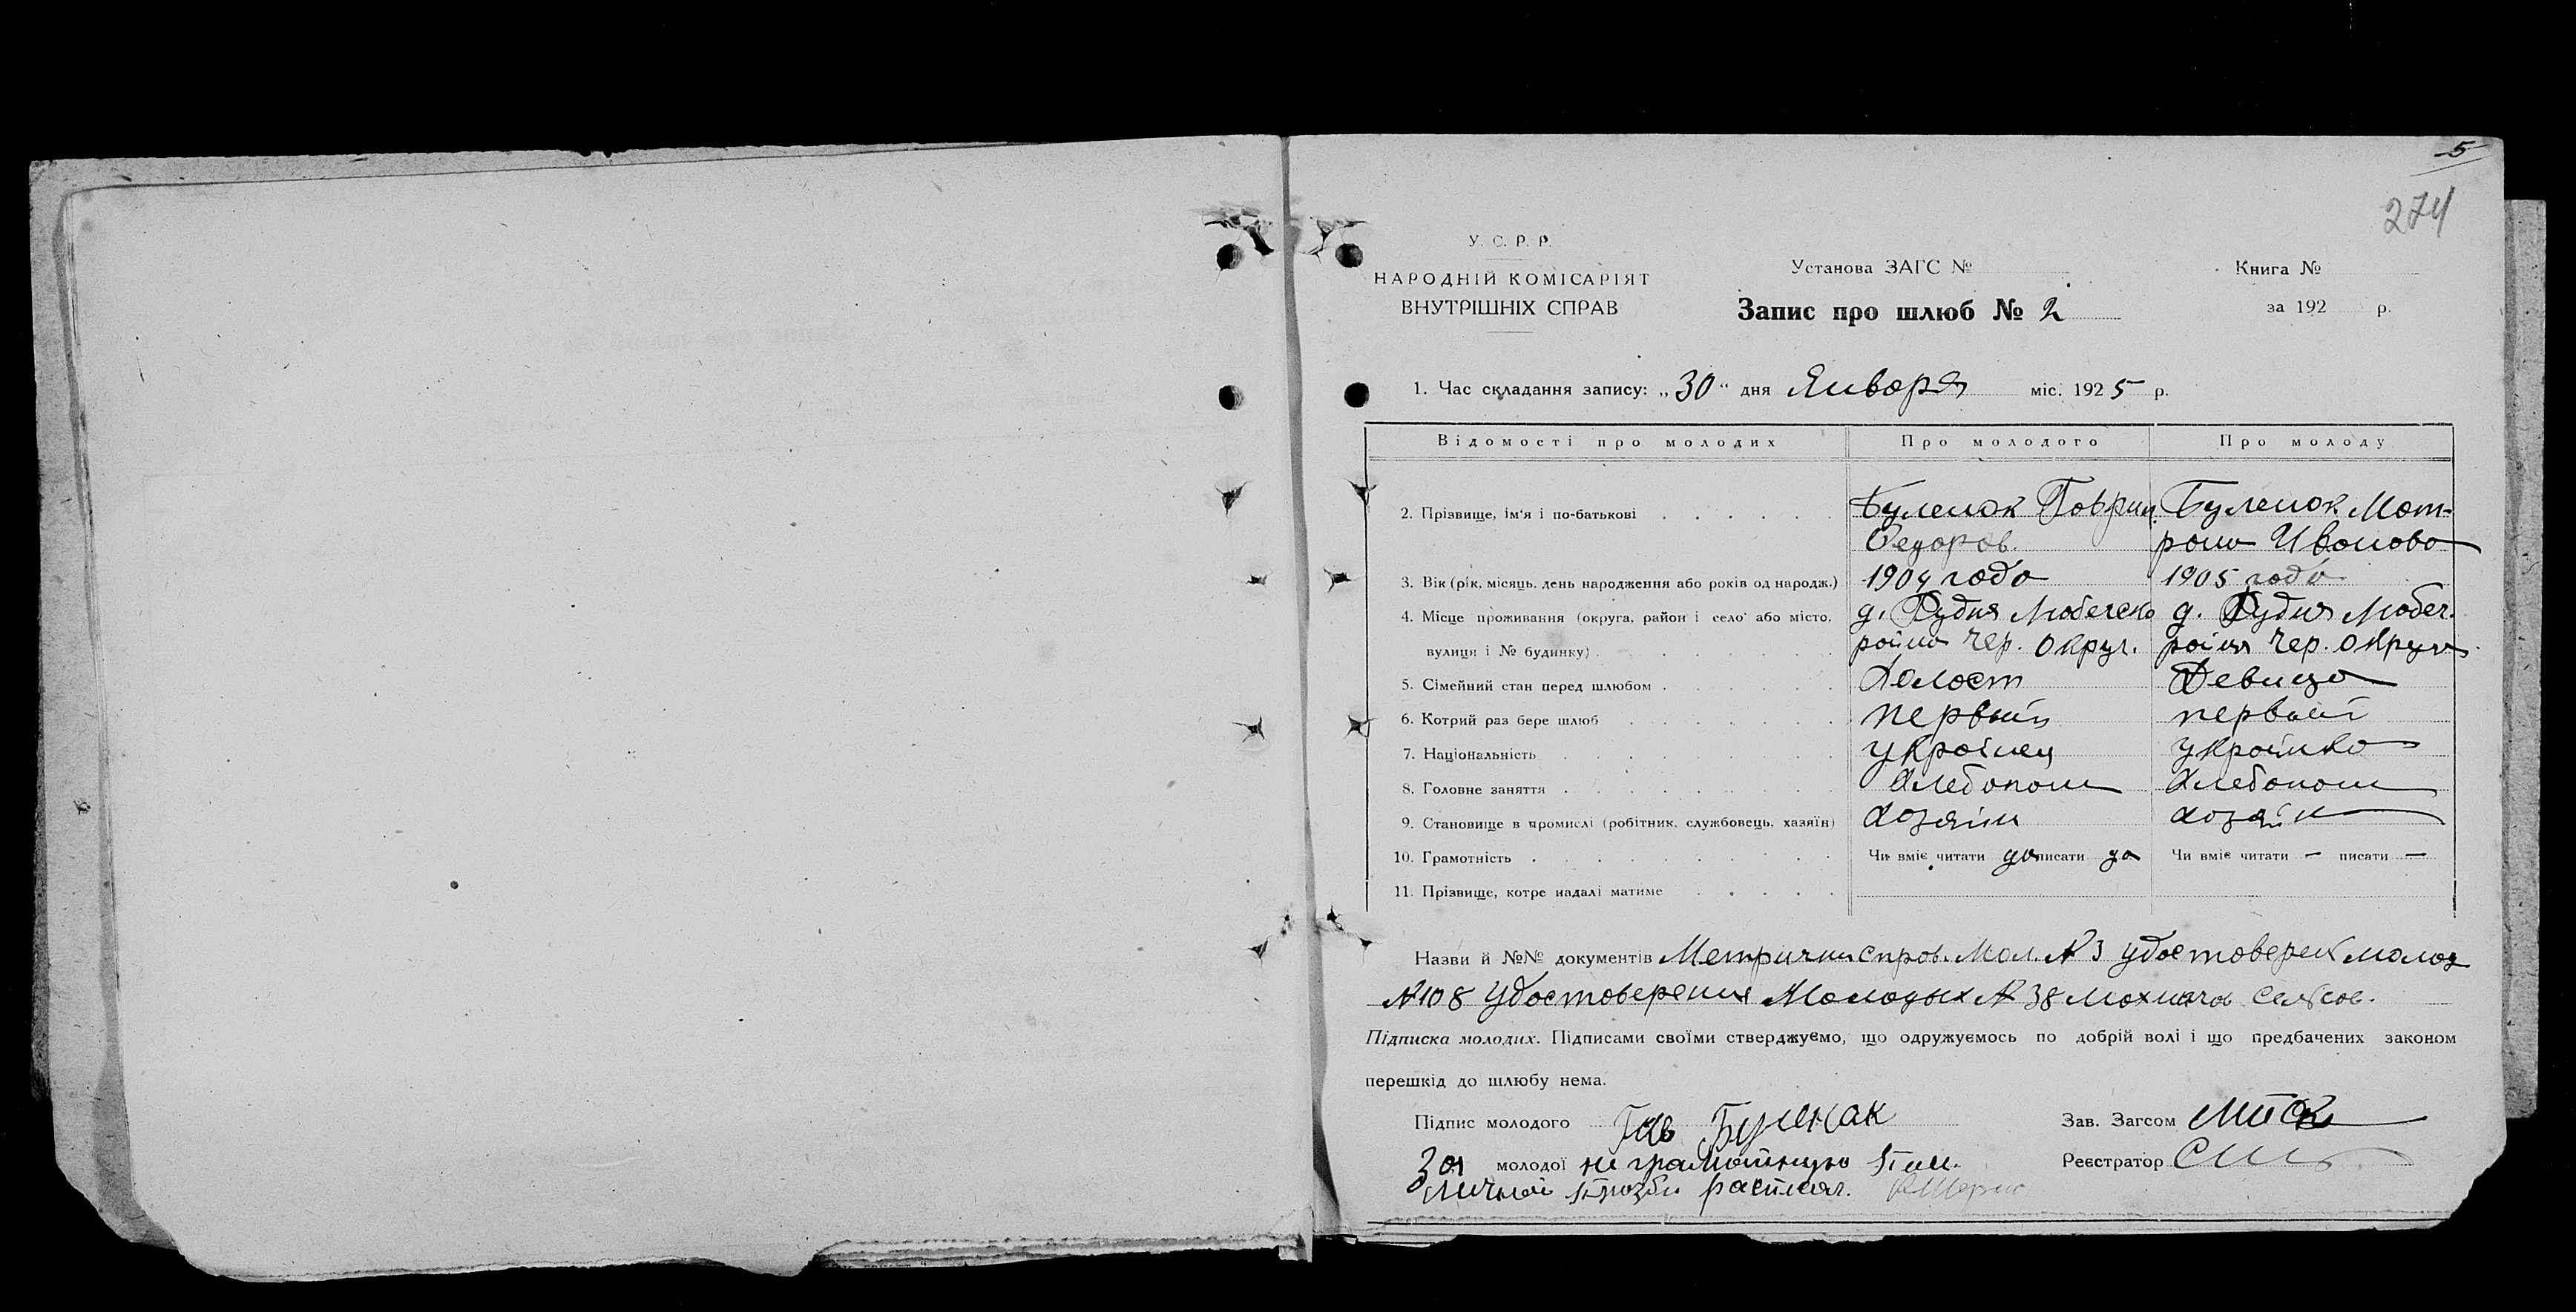 5
274
У. С. Р. Р.
НАРОДНІЙ КОМІСАРІЯТ
ВНУТРІШНІХ СПРАВ
Установа ЗАГС №
Запис про шлюб № 2
Книга №
за 192 р.
1. Час складання запису: „30“ дня Января міс. 1925 р.
Відомості про молодих Про молодого Про молоду
2. Прізвище, ім'я і по-батькові Буленок Гаврил. Буленок Мат-
Федоров. рона Иванова
3. Вік (рік, місяць, день народження або років од народж.) 1904 года 1905 года
4. Місце проживання (округа, район і село або місто, д. Рудня Любечско д. Рудня Любеч.
вулиця і № будинку) район Чер. Округ. район Чер. Округа
5. Сімейний стан перед шлюбом Холост Девица
6. Котрий раз бере шлюб первый первый
7. Національність украинец украинка
8. Головне заняття Хлебопаш Хлебопаш
9. Становище в промислі (робітник, службовець, хазяїн) хозяин хозяин
10. Грамотність Чи вміє читати да писати да Чи вміє читати — писати —
11. Прізвище, котре надалі матиме
Назви й №№ документів Метричн справ. Мол. № 3 удостоверен молод
№ 108 Удостоверения Молодых № 38 Мохначов Сельсов.
Підписка молодих. Підписами своїми стверджуємо, що одружуємось по добрій волі і що предбачених законом
перешкід до шлюбу нема.
Підпис молодого Гав Буленак Зав. Загсом
За молодої не грамотную Реєстратор
личной прозби распися.